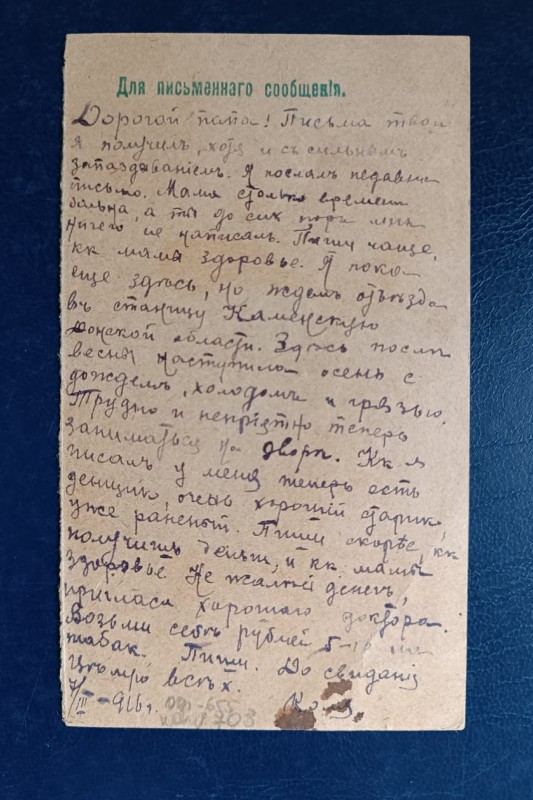 Для письменнаго сообщенія.
Дорогой папа! Письма твои
я получилъ, хотя и съ сильнымъ
запаздываніемъ. Я послалъ недавно
письмо. Мама столько времени
больна, а ты до сих поръ мнѣ
ничего не написалъ. Пиши чаще,
кк мамы здоровье. Я пока
еще здѣсь, но ждемъ отъѣзда
въ станицу Каменскую
Донской области. Здѣсь послѣ
весны наступила осень с
дождемъ, холодомъ и грязью.
Трудно и непріятно теперь
заниматься на дворѣ. Кк я
писалъ у меня теперь есть
денщик, очень хорошій старик,
уже раненый. Пиши скорѣе, кк
получишь деньги, и кк мамы
здоровье. Не жалѣй денегъ,
пригласи хорошаго доктора.
Возьми себѣ рублей 5-10 на
табак. Пиши. До свиданія
Цѣлую всѣх.
7/III - 916 г. Коля